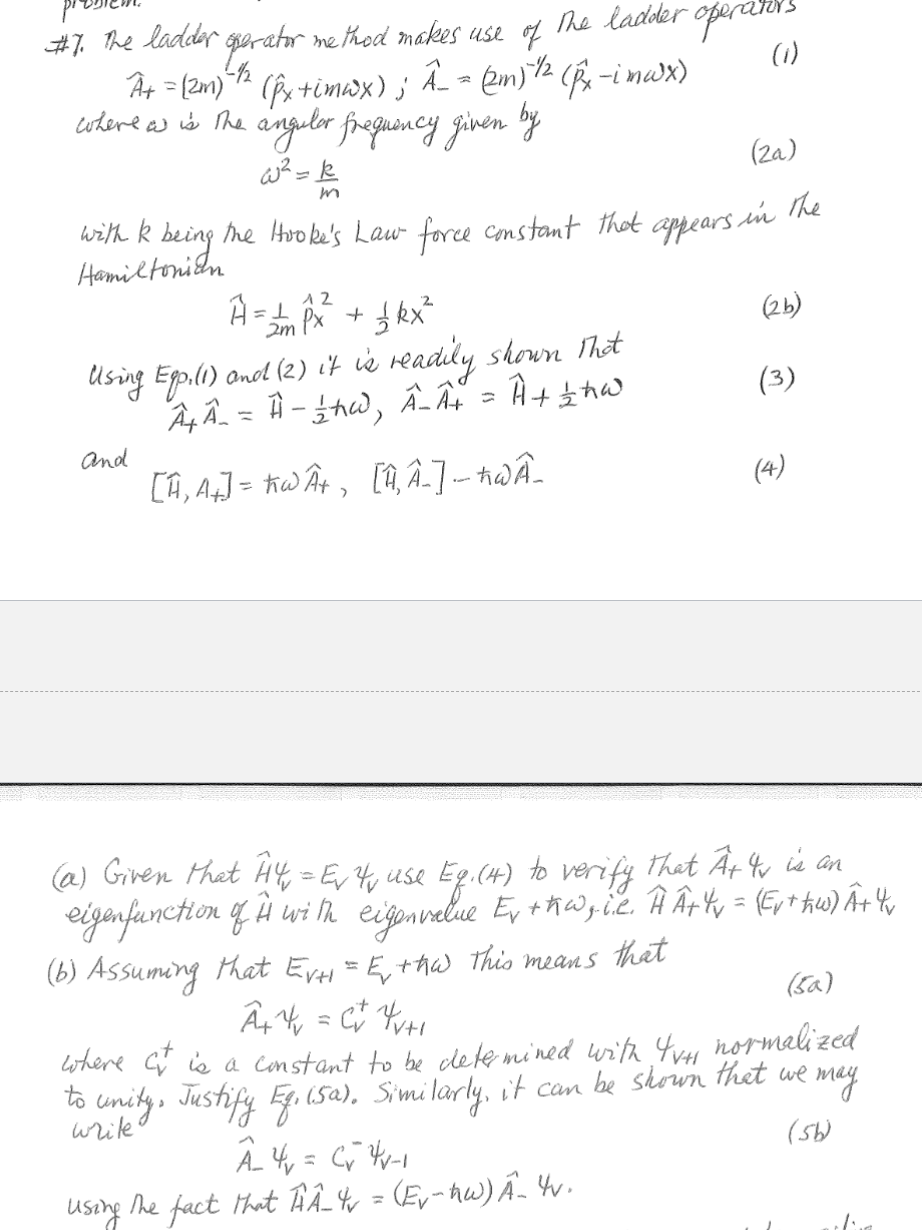 problem.
#7. The ladder operator method makes use of the ladder operators
Â₊ = (2m)^{-1/2} (p̂ₓ + imωx) ; Â₋ = (2m)^{-1/2} (p̂ₓ - imωx) (1)
where ω is the angular frequency given by
ω² = k/m (2a)
with k being the Hooke's Law force constant that appears in the
Hamiltonian
Ĥ = 1/2m p̂ₓ² + 1/2 kx² (2b)
Using Eqs.(1) and (2) it is readily shown that
Â₊Â₋ = Ĥ - 1/2 ħω, Â₋Â₊ = Ĥ + 1/2 ħω (3)
and
[Ĥ, A₊] = ħωÂ₊, [Ĥ, Â₋] - ħωÂ₋ (4)
(a) Given that Ĥψᵥ = Eᵥψᵥ use Eq.(4) to verify that Â₊ψᵥ is an
eigenfunction of Ĥ with eigenvalue Eᵥ + ħω, i.e. ĤÂ₊ψᵥ = (Eᵥ + ħω)Â₊ψᵥ
(b) Assuming that Eᵥ₊₁ = Eᵥ + ħω this means that
Â₊ψᵥ = Cᵥ⁺ψᵥ₊₁ (5a)
where Cᵥ⁺ is a constant to be determined with ψᵥ₊₁ normalized
to unity. Justify Eq. (5a). Similarly, it can be shown that we may
write
Â₋ψᵥ = Cᵥ⁻ψᵥ₋₁ (5b)
using the fact that ĤÂ₋ψᵥ = (Eᵥ - ħω)Â₋ψᵥ.